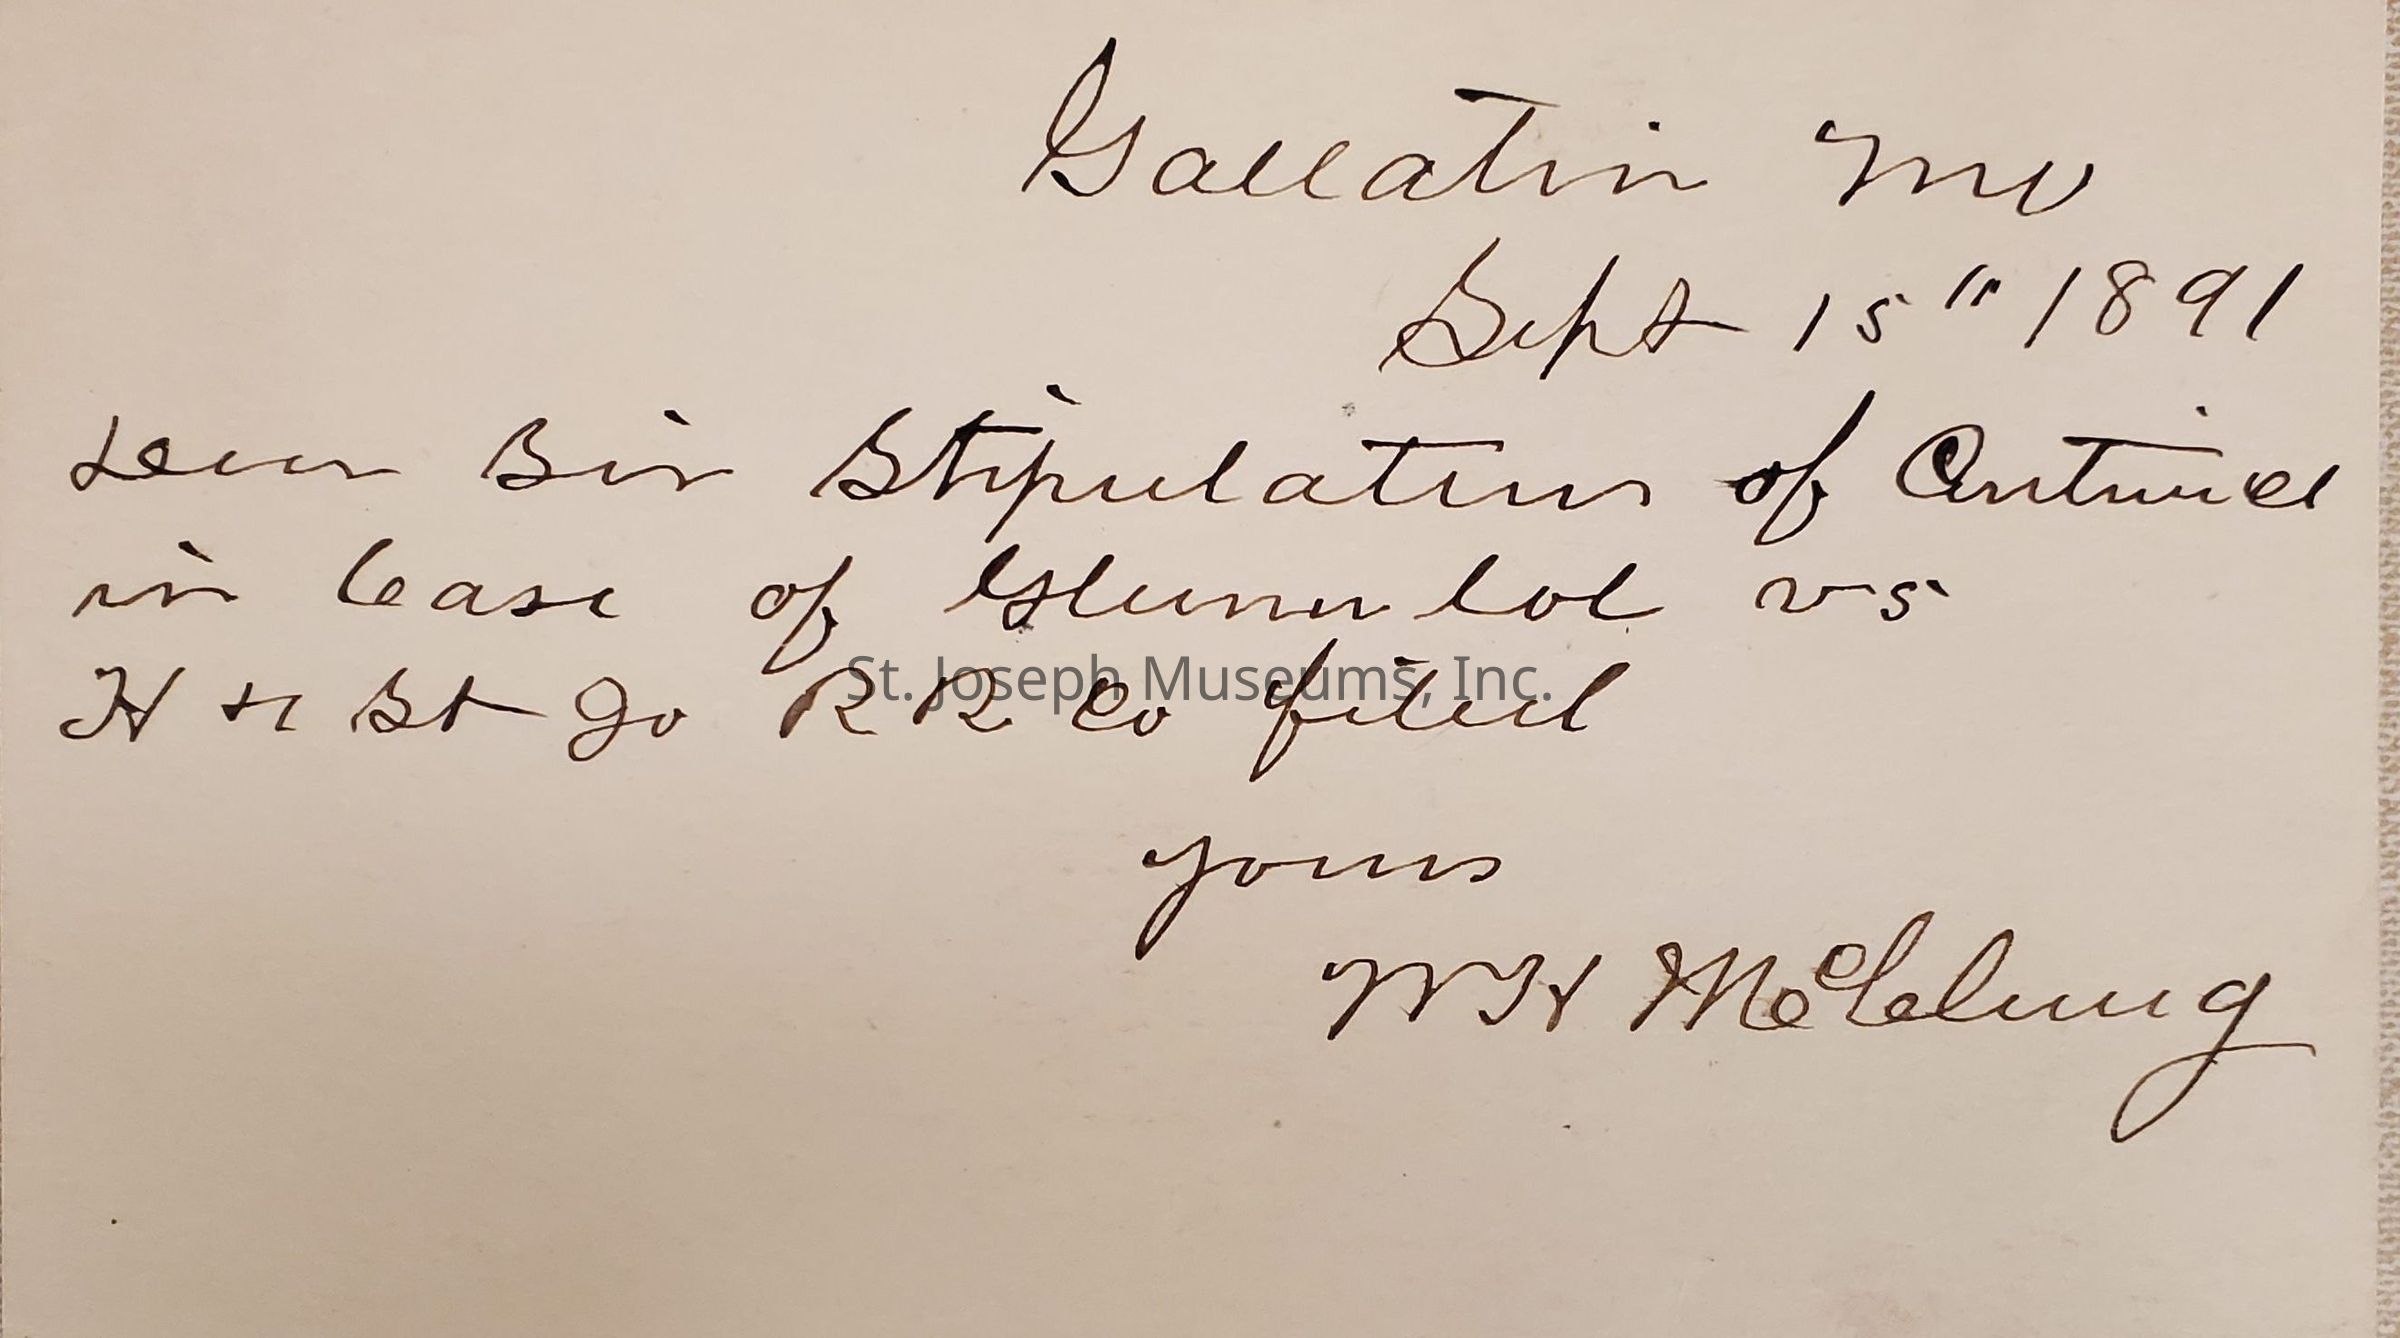 Gallatin Mo
Sept 15" 1891
Dear Sir Stipulation of
in Case of vs
H & St Jo R R Co filed
St. Joseph Museums, Inc.
yours
W H McClung